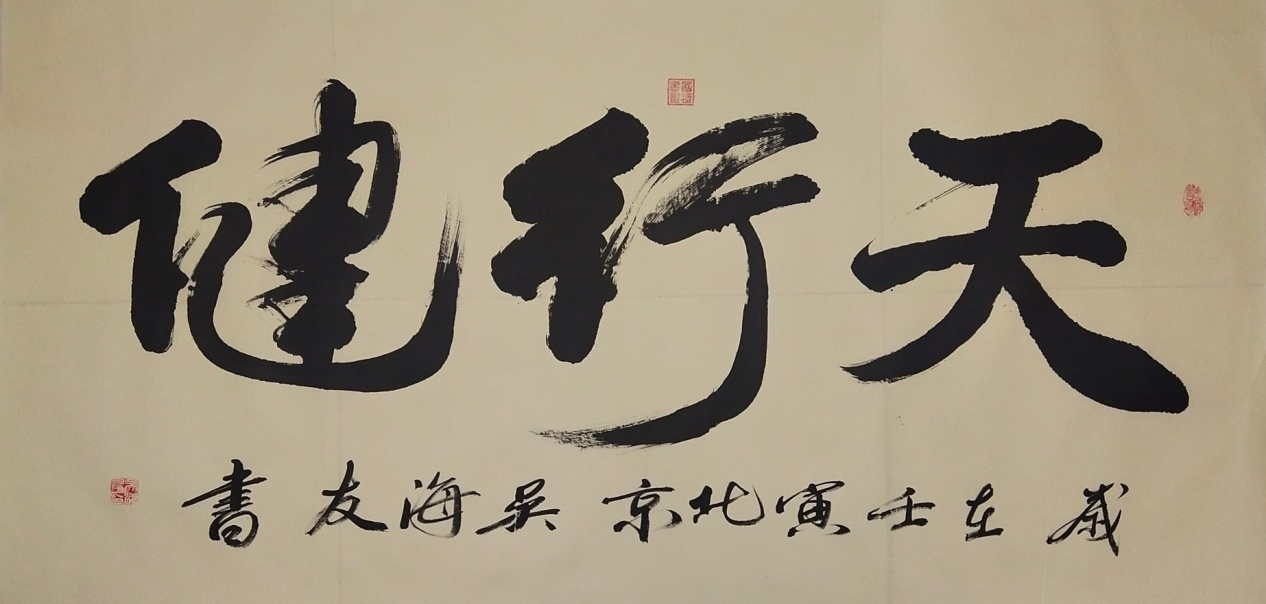 天行健
歲在壬寅北京吴海友書